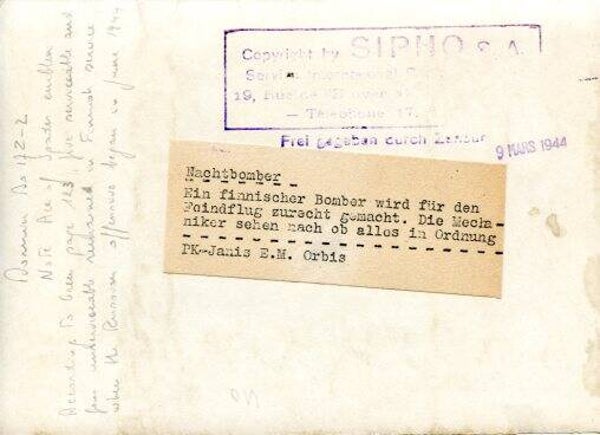 Copyright by SIPHO S.A.
Service International
19, Rue de
— Telephone 17.
Frei gegeben durch Zensur
9 MARS 1944
Nachtbomber
Ein finnischer Bomber wird für den
Feindflug zurecht gemacht. Die Mecha-
niker sehen nach ob alles in Ordnung
PK-Janis E.M. Orbis
Dornier Do 17Z-2
Note Ace of Spades emblem
According to Green page 123, five serviceable and
four unserviceable remained in Finnish service
when the Russian offensive began in June 1944